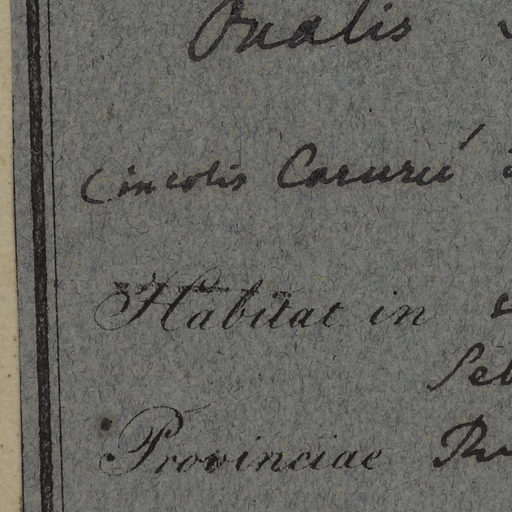 Ovalis
(incolis Carurú
Habitat in
Seb
Provinciae